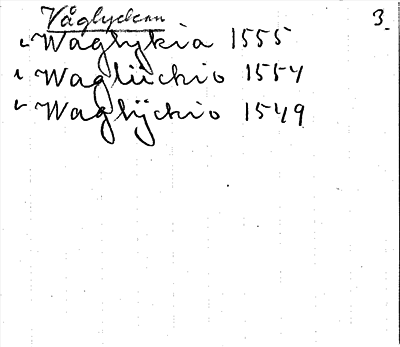 Våglycken 3.
i Waglykia 1555
i Waglüchio 1554
i Waglÿchio 1549